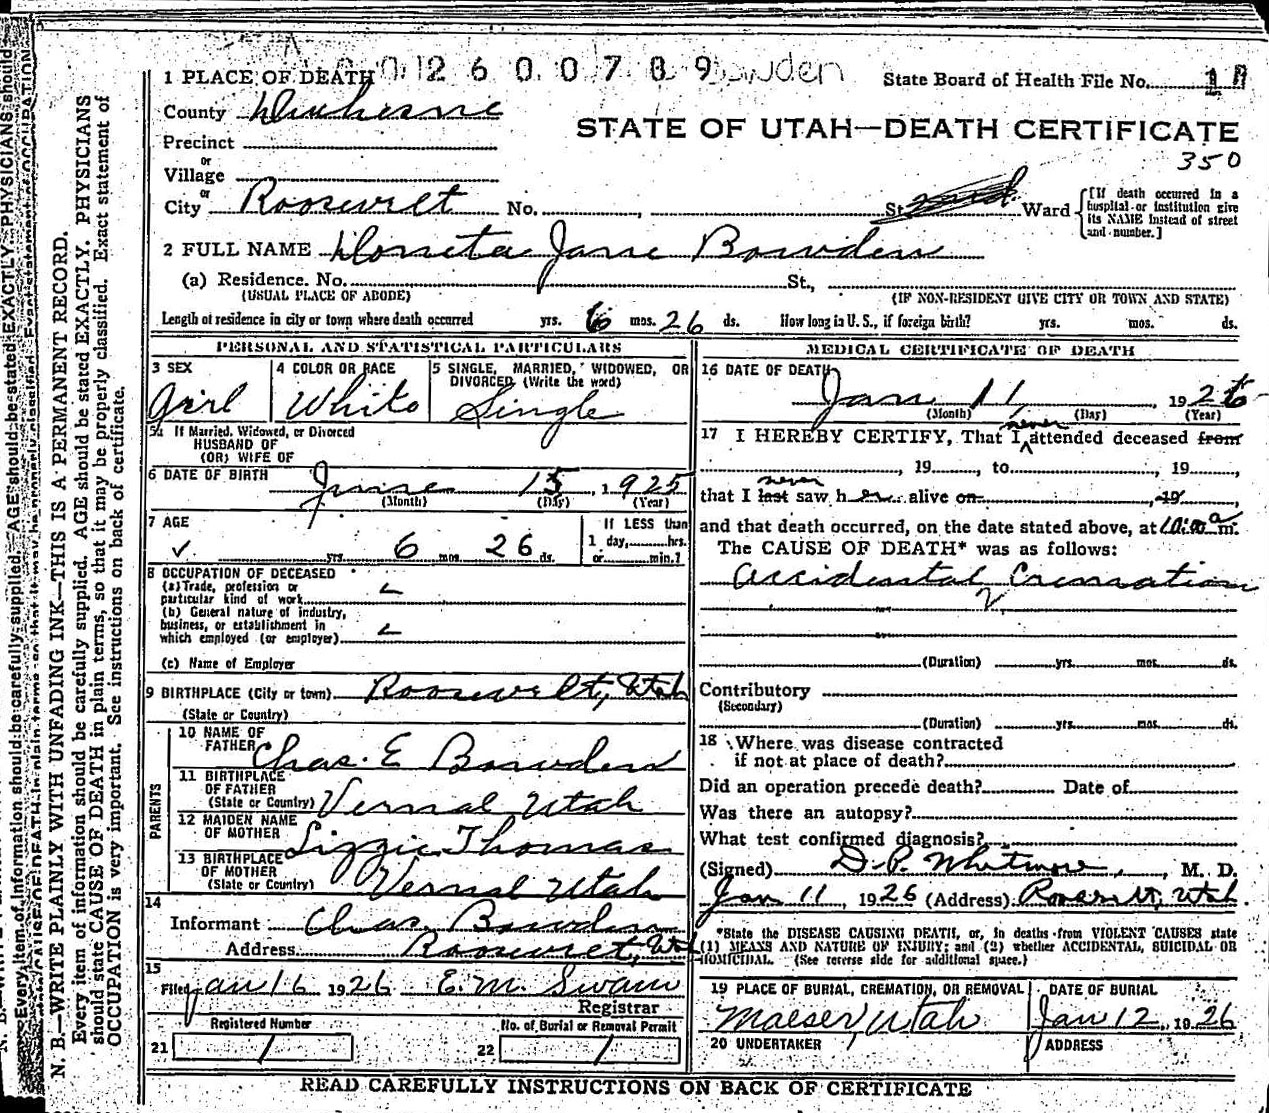 0 1 2 6 0 0 7 8 9 Bowden
1 PLACE OF DEATH
State Board of Health File No. 1
County Duchesne
STATE OF UTAH—DEATH CERTIFICATE
350
Precinct
or
Village
or
City Roosevelt No. , St. Ward
[If death occurred in a hospital or institution give its NAME instead of street and number.]
2 FULL NAME Loneta Jane Bowden
(a) Residence. No. St.,
(USUAL PLACE OF ABODE) (IF NON-RESIDENT GIVE CITY OR TOWN AND STATE)
Length of residence in city or town where death occurred yrs. 6 mos. 26 ds. How long in U. S., if foreign birth? yrs. mos. ds.
PERSONAL AND STATISTICAL PARTICULARS
3 SEX
Girl
4 COLOR OR RACE
White
5 SINGLE, MARRIED, WIDOWED, OR DIVORCED (Write the word)
Single
5a If Married, Widowed, or Divorced
HUSBAND OF
(OR) WIFE OF
6 DATE OF BIRTH June 15, 1925
(Month) (Day) (Year)
7 AGE
yrs. 6 mos. 26 ds.
If LESS than
1 day, hrs.
or min.?
8 OCCUPATION OF DECEASED
(a) Trade, profession or
particular kind of work
(b) General nature of industry,
business, or establishment in
which employed (or employer)
(c) Name of Employer
9 BIRTHPLACE (City or town) Roosevelt, Utah
(State or Country)
PARENTS
10 NAME OF
FATHER Chas. E Bowden
11 BIRTHPLACE
OF FATHER
(State or Country) Vernal Utah
12 MAIDEN NAME
OF MOTHER Lizzie Thomas
13 BIRTHPLACE
OF MOTHER
(State or Country) Vernal Utah
14
Informant Chas. Bowden
Address Roosevelt, Utah
15
Filed Jan 16 1926 E. M. Swain
Registrar
Registered Number
21 1
No. of Burial or Removal Permit
22 1
MEDICAL CERTIFICATE OF DEATH
16 DATE OF DEATH
Jan 11, 1926
(Month) (Day) (Year)
17 I HEREBY CERTIFY, That I never attended deceased from
, 19 , to , 19 ,
that I last never saw her alive on , 19
and that death occurred, on the date stated above, at 10:00 a m.
The CAUSE OF DEATH* was as follows:
Accidental Cremation
(Duration) yrs. mos. ds.
Contributory
(Secondary)
(Duration) yrs. mos. ds.
18 Where was disease contracted
if not at place of death?
Did an operation precede death? Date of
Was there an autopsy?
What test confirmed diagnosis?
(Signed) D. P. Whitmore, M. D.
Jan 11, 1926 (Address) Roosevelt, Utah.
*State the DISEASE CAUSING DEATH, or, in deaths from VIOLENT CAUSES state
(1) MEANS AND NATURE OF INJURY; and (2) whether ACCIDENTAL, SUICIDAL OR
HOMICIDAL. (See reverse side for additional space.)
19 PLACE OF BURIAL, CREMATION, OR REMOVAL
Maeser, Utah
DATE OF BURIAL
Jan 12, 1926
20 UNDERTAKER
ADDRESS
READ CAREFULLY INSTRUCTIONS ON BACK OF CERTIFICATE
N. B.—WRITE PLAINLY WITH UNFADING INK—THIS IS A PERMANENT RECORD.
Every item of information should be carefully supplied. AGE should be stated EXACTLY. PHYSICIANS
should state CAUSE OF DEATH in plain terms, so that it may be properly classified. Exact statement of
OCCUPATION is very important. See instructions on back of certificate.